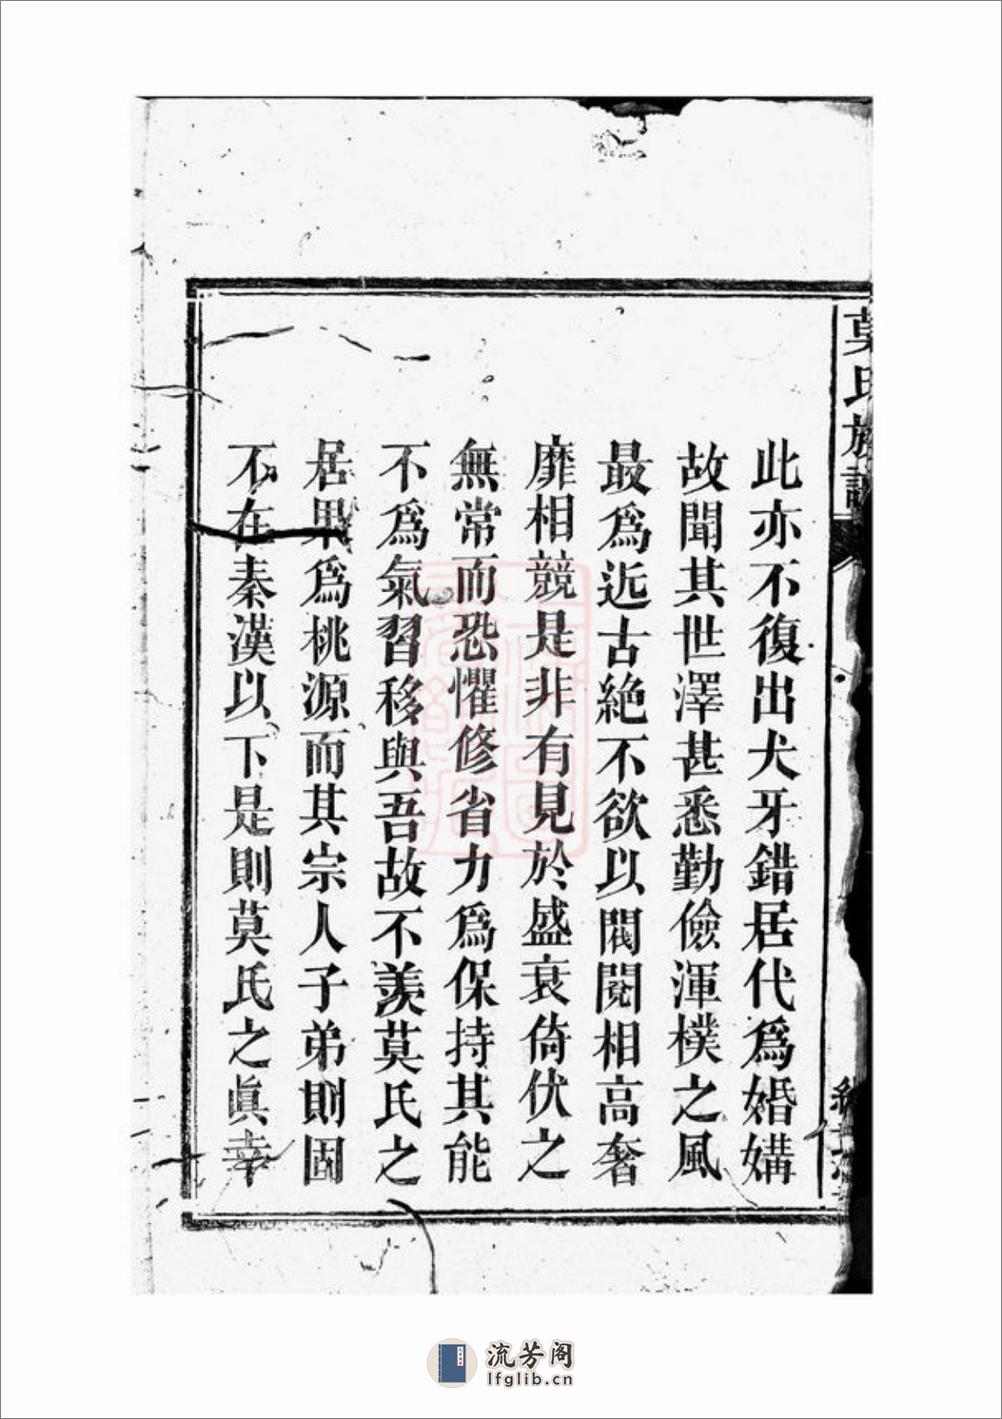 莫氏族譜
此亦不復出犬牙錯居代爲婚媾
故聞其世澤甚悉勤儉渾樸之風
最爲近古絶不欲以閥閱相高奢
靡相競是非有見於盛衰倚伏之
無常而恐懼修省力爲保持其能
不爲氣習移與吾故不羨莫氏之
居果爲桃源而其宗人子弟則固
不在秦漢以下是則莫氏之眞幸
流芳阁
lfglib.cn